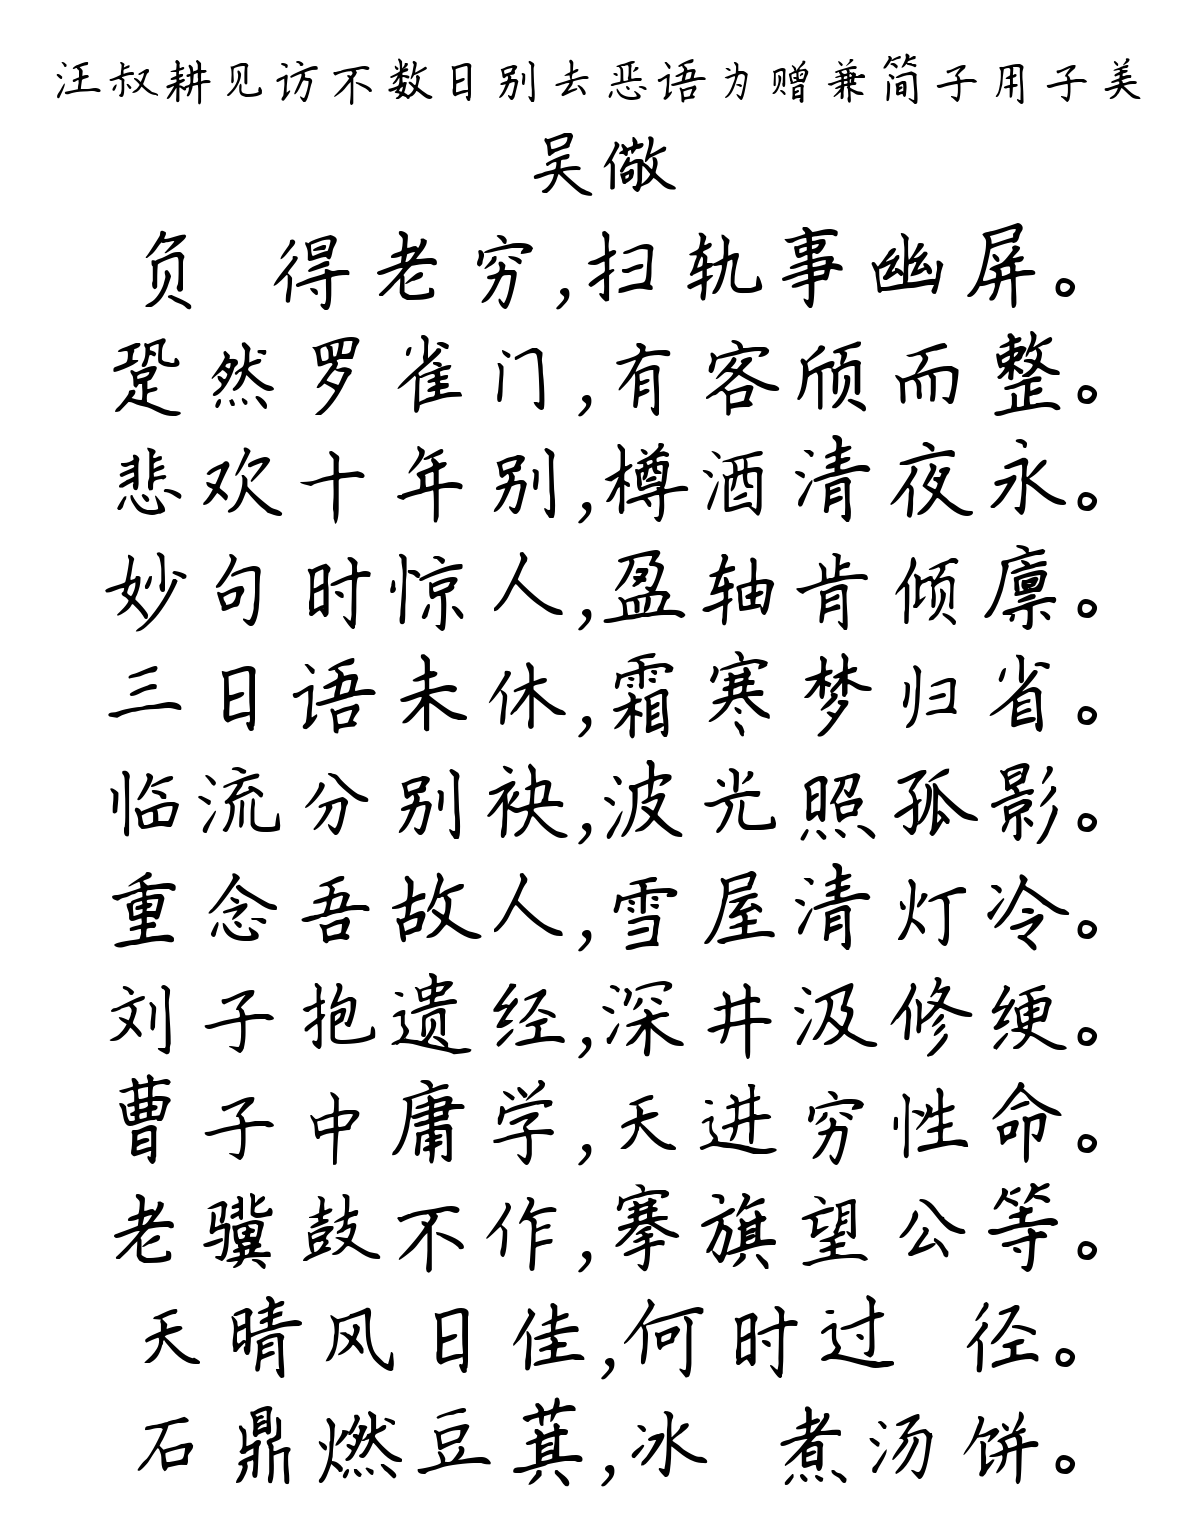 汪叔耕见访不数日别去恶语为赠兼简子用子美
吴儆
负 得老穷,扫轨事幽屏。
跫然罗雀门,有客颀而整。
悲欢十年别,樽酒清夜永。
妙句时惊人,盈轴肯倾廪。
三日语未休,霜寒梦归省。
临流分别袂,波光照孤影。
重念吾故人,雪屋清灯冷。
刘子抱遗经,深井汲修绠。
曹子中庸学,天进穷性命。
老骥鼓不作,搴旗望公等。
天晴风日佳,何时过 径。
石鼎燃豆萁,冰 煮汤饼。